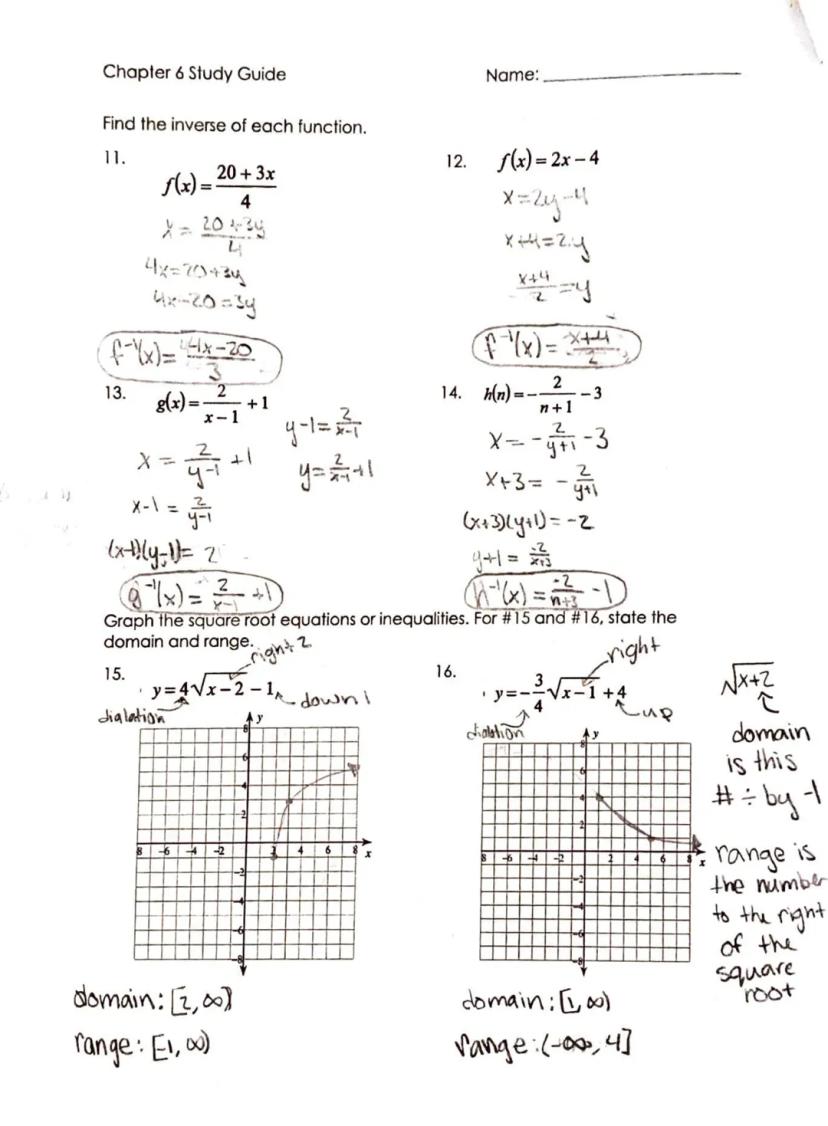 Chapter 6 Study Guide Name:
Find the inverse of each function.
11. f(x) = (20 + 3x)/4
x = (20 + 3y)/4
4x = 20 + 3y
4x - 20 = 3y
f⁻¹(x) = (4x - 20)/3
12. f(x) = 2x - 4
x = 2y - 4
x + 4 = 2y
(x + 4)/2 = y
f⁻¹(x) = (x + 4)/2
13. g(x) = 2/(x - 1) + 1
x = 2/(y - 1) + 1
x - 1 = 2/(y - 1)
(x - 1)(y - 1) = 2
y - 1 = 2/(x - 1)
y = 2/(x - 1) + 1
g⁻¹(x) = 2/(x - 1) + 1
14. h(n) = - 2/(n + 1) - 3
x = - 2/(y + 1) - 3
x + 3 = - 2/(y + 1)
(x + 3)(y + 1) = -2
y + 1 = -2/(x + 3)
h⁻¹(x) = -2/(n + 3) - 1
Graph the square root equations or inequalities. For #15 and #16, state the
domain and range.
15. y = 4√(x - 2) - 1
right 2
down 1
dialation
y
8
6
4
2
8 -6 -4 -2 2 4 6 8 x
-2
-4
-6
-8
domain: [2, ∞)
range: [-1, ∞)
16. y = - 3/4 √(x - 1) + 4
right
up
dialation
y
8
6
4
2
8 -6 -4 -2 2 4 6 8 x
-2
-4
-6
-8
domain: [1, ∞)
range: (-∞, 4]
√(x+2)
domain
is this
# ÷ by -1
range is
the number
to the right
of the
square
root